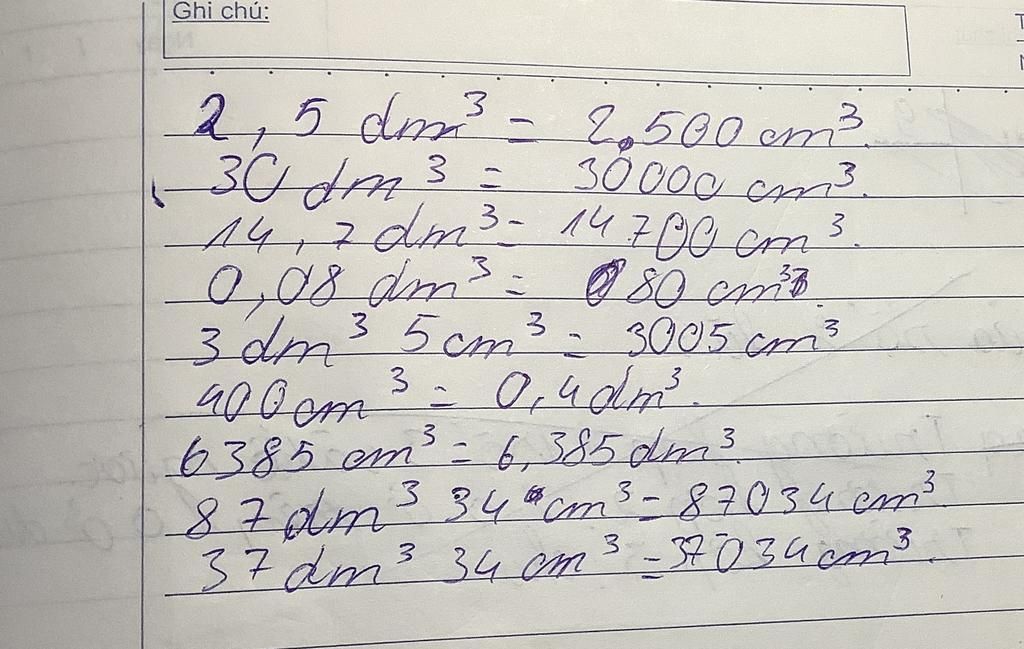 Ghi chú:
2,5 dm³ = 2.500 cm³.
30 dm³ = 30000 cm³.
14,7 dm³ = 14700 cm³.
0,08 dm³ = 80 cm³.
3 dm³ 5 cm³ = 3005 cm³
400 cm³ = 0,4 dm³.
6385 cm³ = 6,385 dm³.
87 dm³ 34 cm³ = 87034 cm³.
37 dm³ 34 cm³ = 37034 cm³.